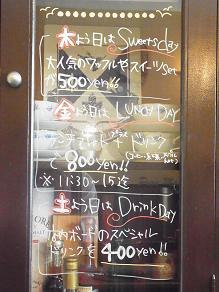 木よう日は Sweets day
大人気のワッフルやスイーツset
が500yen!!
金よう日は LUNCH DAY
ランチプレート プラス ドリンク
で 800yen!!
※11:30~15迄
土よう日は Drink Day
店内ボードのスペシャル
ドリンクを400yen!!